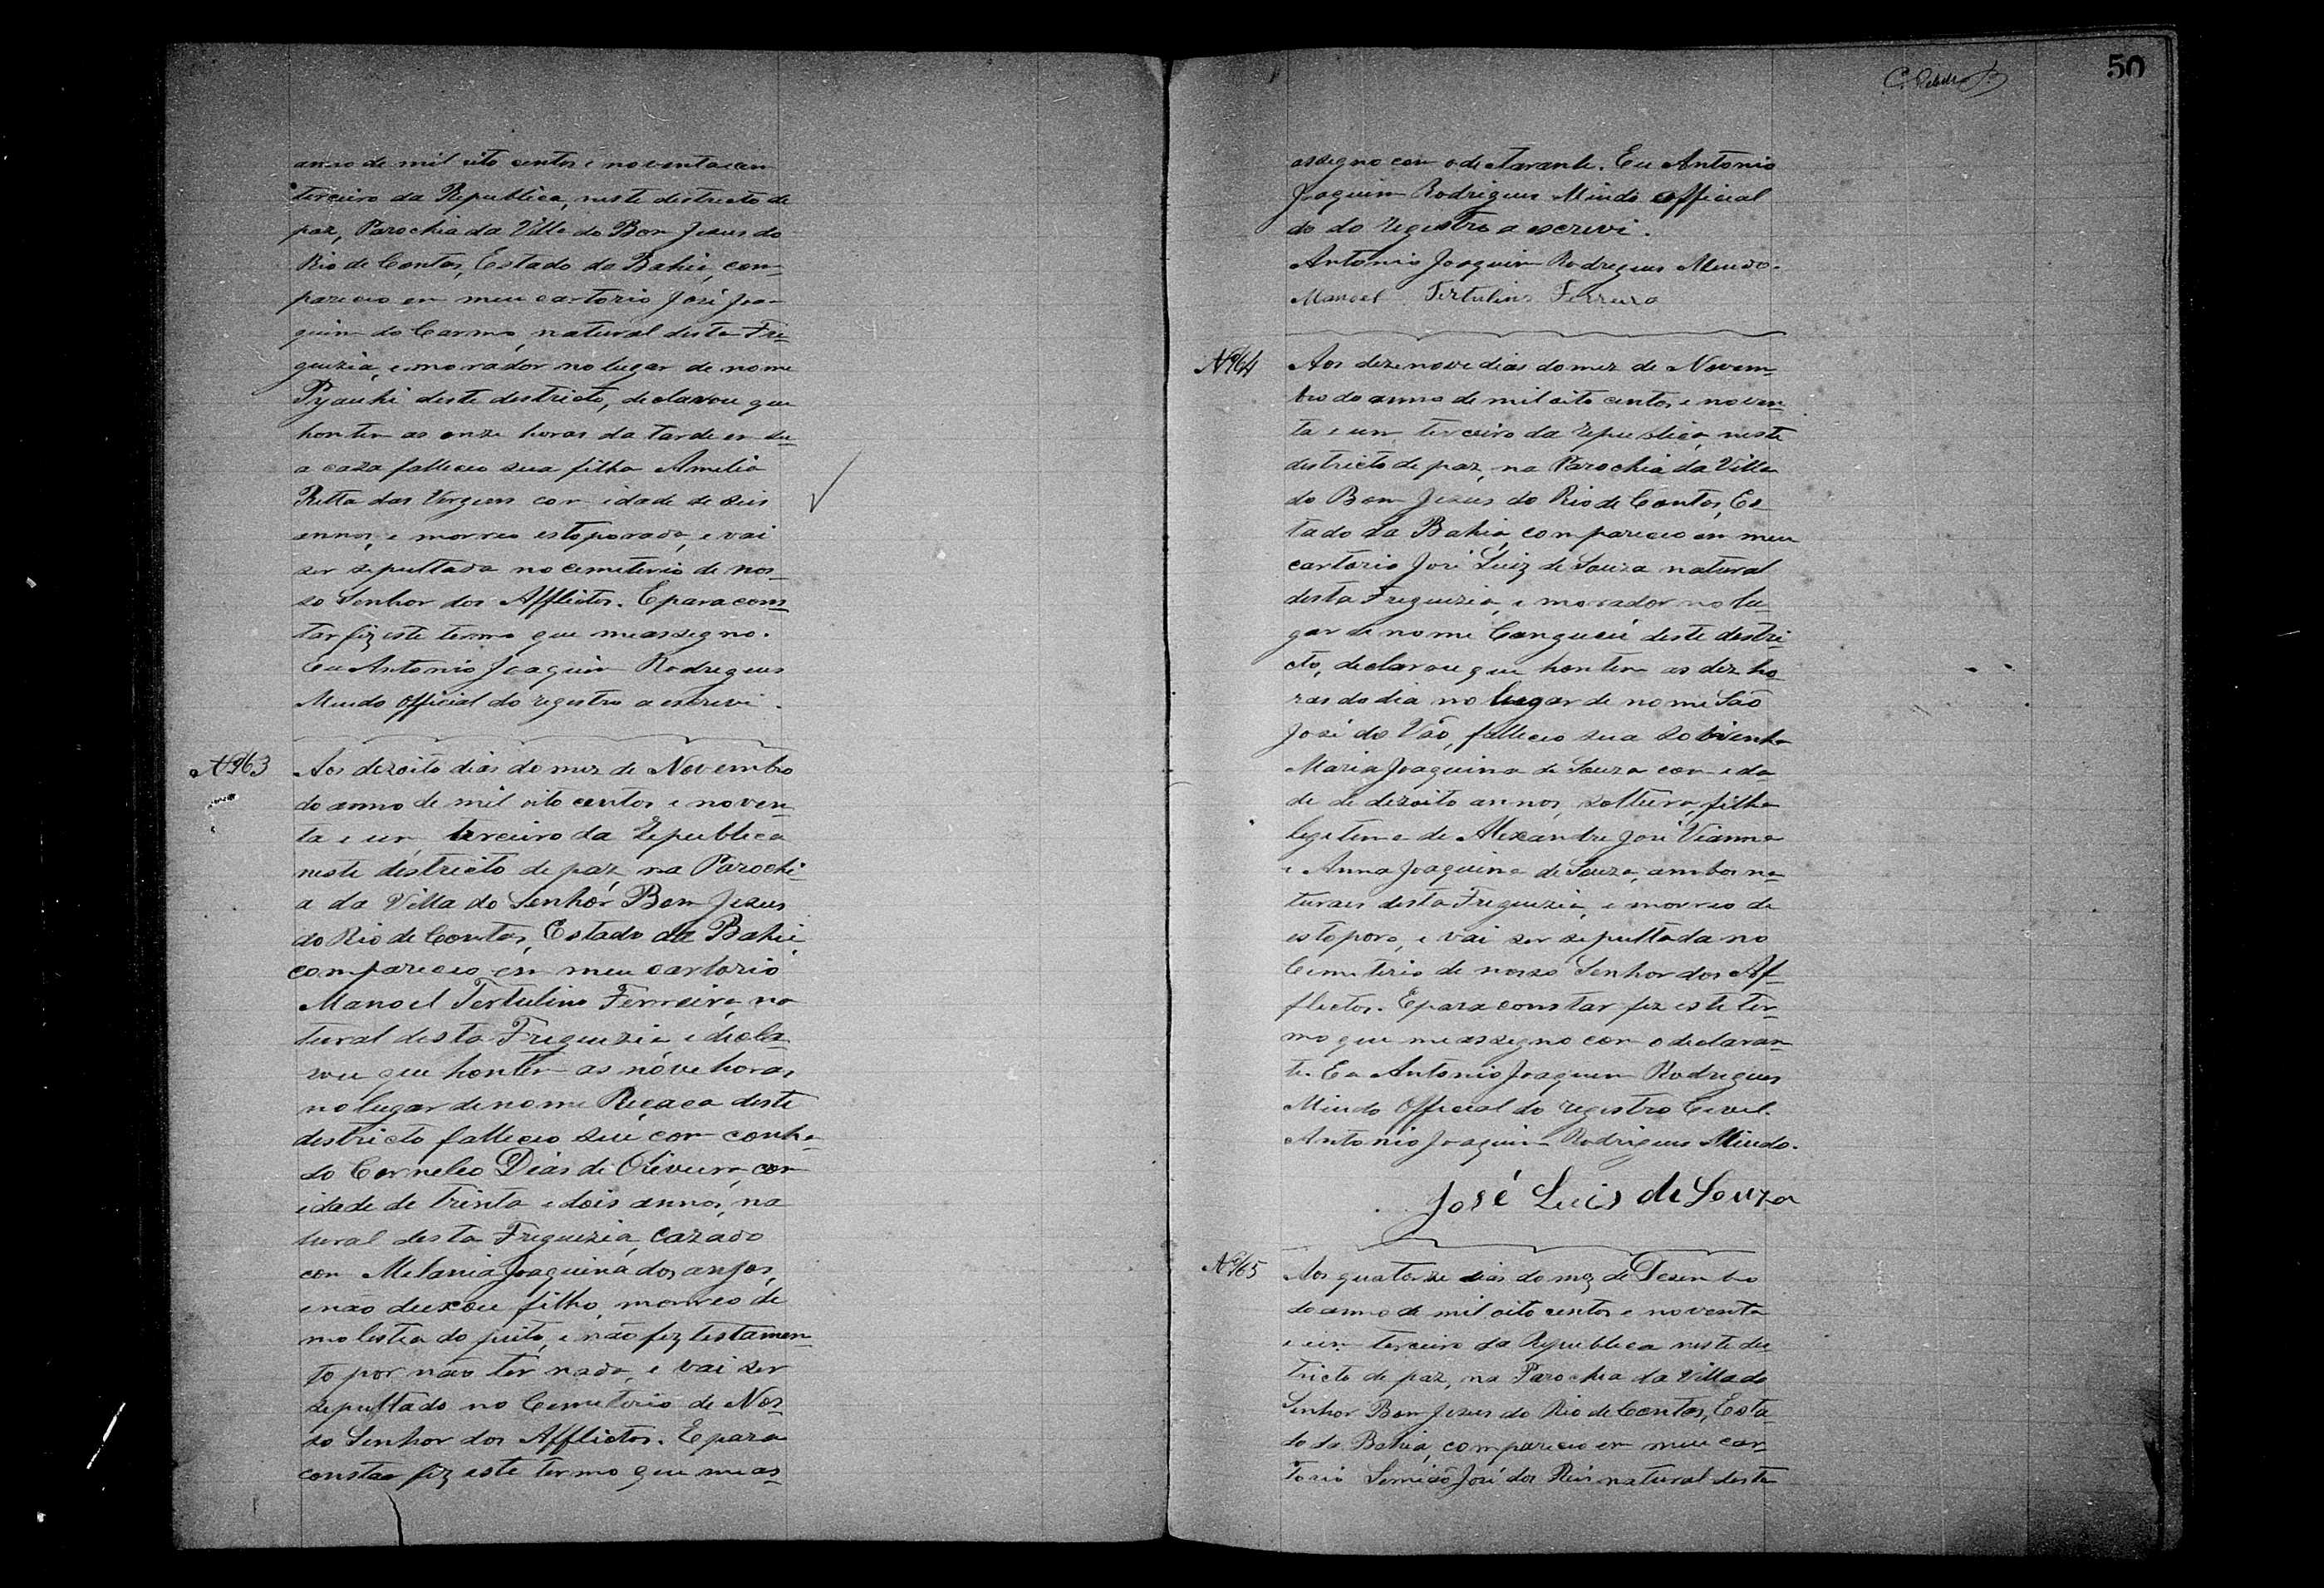 anno de mil oito centos e noventa e um
terceiro da Republica, neste destricto de
paz, Parochia da Villa do Bom Jesus do
Rio de Contas, Estado da Bahia, com-
pareceo em meu cartorio José Joa-
quim do Carmo, natural desta Fre-
guizia, e morador no lugar de nome
Pyauhi deste destricto, declarou que
hontem as onze horas da tarde em su-
a caza falleceo sua filha Amelia
Ritta das Vergens com idade de seis
annos, e morreo estoporada, e vai
ser sepultada no cemeterio de nos-
so Senhor dos Afflictos. E para cons-
tar fiz este termo que me assegno.
Eu Antonio Joaquim Rodrigues
Miudo official do registro a escrevi.
Nº 63
Aos dezoito dias do mez de Novembro
do anno de mil oito centos e noven-
ta e um, terceiro da Republica
neste destricto de paz, na Parochi-
a da Villa do Senhor Bom Jesus
do Rio de Contas, Estado da Bahia,
compareceo em meu cartorio
Manoel Tertulino Ferreira, na
tural desta Freguizia e decla-
rou que hontem as nóve horas,
no lugar de nome Reçaca deste
destricto falleceo seu com conha-
do Cornelio Dias de Oliveira, com
idade de trinta e dois annos, na
tural desta Freguizia, cazado
com Melania Joaquina dos anjos,
e não deixou filho, morreo de
molestia do peito, e não fez testamen-
to por não ter nada, e vai ser
sepultado no Cemeterio de Nos-
so Senhor dos Afflictos. E para
constar fiz este termo que me as-
50
assegno com o declarante. Eu Antonio
Joaquim Rodrigues Miudo official
do do registro a escrevi.
Antonio Joaquim Rodrigues Miudo.
Manoel Tertulino Ferreira
Nº 64
Aos dezenove dias do mez de Novem-
bro do anno de mil oito centos e noven-
ta e um, terceiro da republica, neste
destricto de paz, na Parochia da Villa
do Bom Jesus do Rio de Contas, Es-
tado da Bahia, compareceo em meu
cartorio José Luiz de Souza natural
desta Freguizia, e morador no lu-
gar de nome Cangucú deste destri-
cto, declarou que hontem as dez ho-
ras do dia no lugar de nome São
José do Vão, falleceo sua sobrinha
Maria Joaquina de Souza com eda-
de de dezoito annos, solteira, filha
legitima de Alexandre José Vianna
e Anna Joaquina de Souza, ambos na-
turaes desta Freguizia, e morreo de
estoporo, e vai ser sepultada no
Cemeterio de nosso Senhor dos Af-
flictos. E para constar fiz este ter-
mo que me assegno com o declaran-
te. Eu Antonio Joaquim Rodrigues
Miudo Official do registro Cevel.
Antonio Joaquim Rodrigues Miudo.
José Luis de Souza
Nº 65
Aos quatorze dias do mez de Dezembro
do anno de mil oito centos e noventa
e um terceiro da Republica neste des
tricto de paz, na Parochia da Villa do
Senhor Bom Jesus do Rio de Contas, Esta-
do da Bahia, compareceo em meu car-
torio Semião José dos Reis natural desta